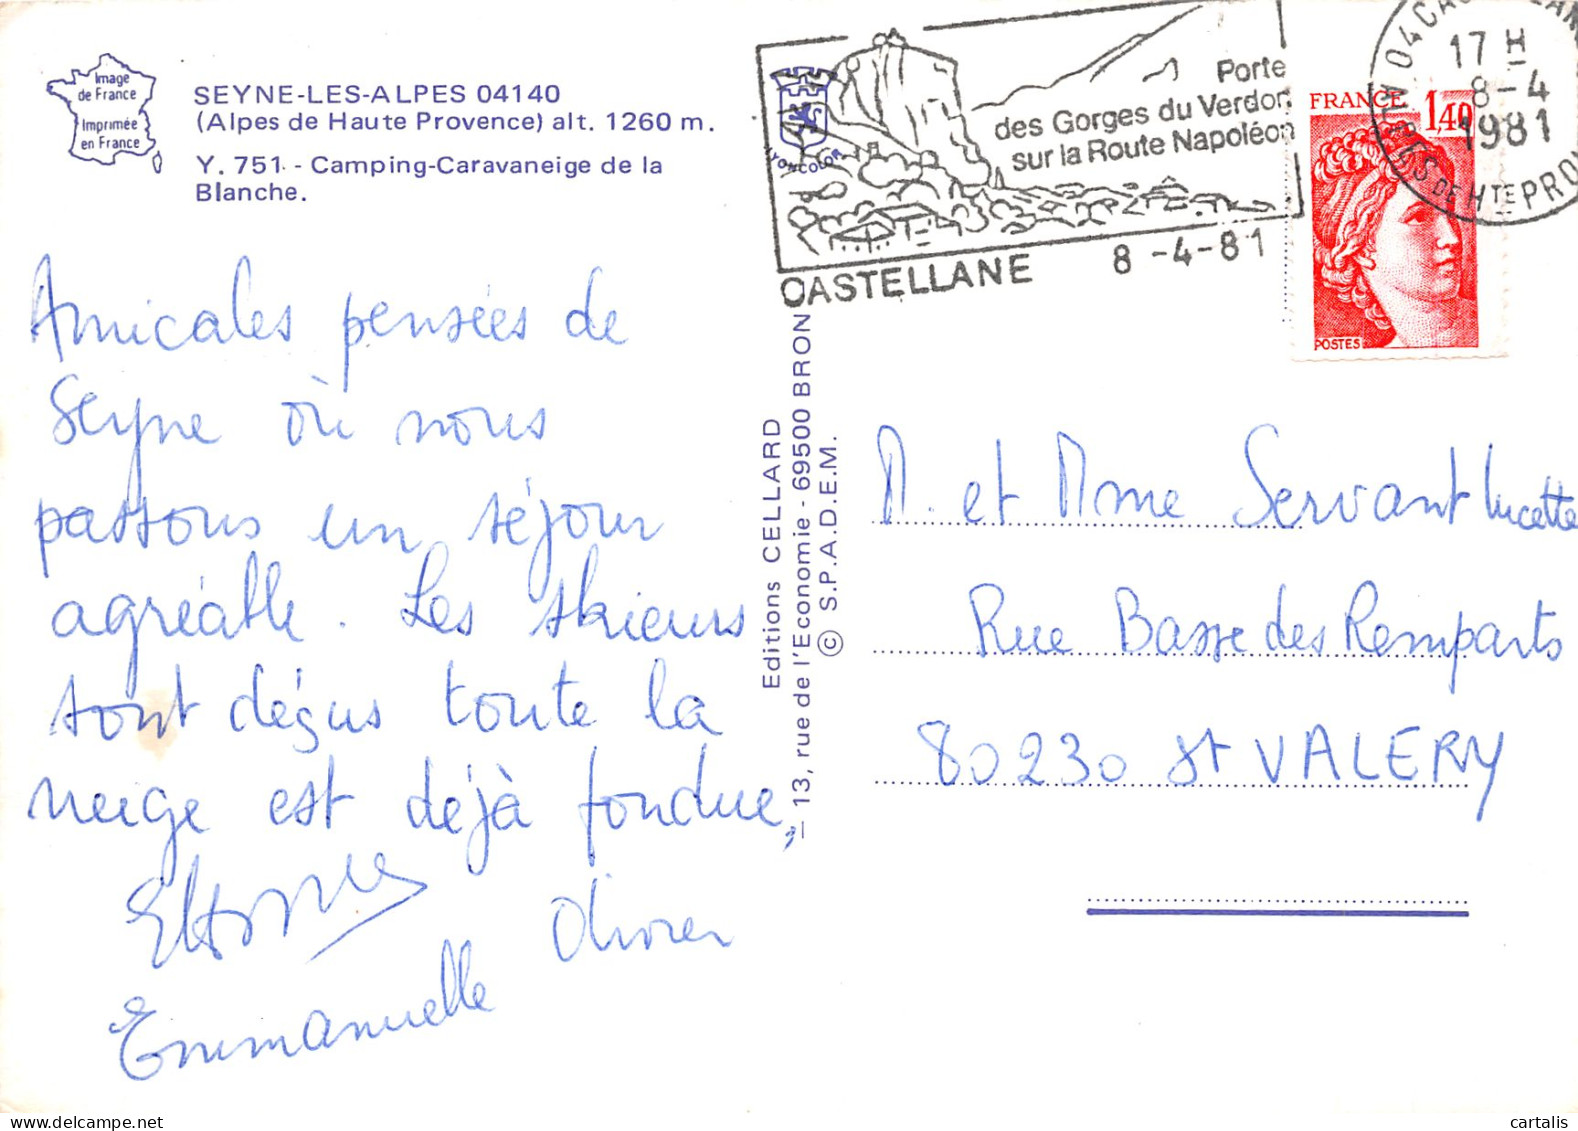 Image
de France
Imprimée
en France
SEYNE-LES-ALPES 04140
(Alpes de Haute Provence) alt. 1260 m.
Y. 751 - Camping-Caravaneige de la
Blanche.
Amicales pensées de
Seyne où nous
passons un séjour
agréable. Les skieurs
sont déçus toute la
neige est déjà fondue,
Olivier
Emmanuelle
Editions CELLARD
— 13, rue de l'Economie - 69500 BRON
© S.P.A.D.E.M.
LYONCOLOR
Porte
des Gorges du Verdon
sur la Route Napoléon
CASTELLANE 8-4-81
17 H
8-4
1981
ALPES DE HTE PROV
FRANCE 1,40
POSTES
M. et Mme Servant Lucette
Rue Basse des Remparts
80230 St VALERY
cartalis.com